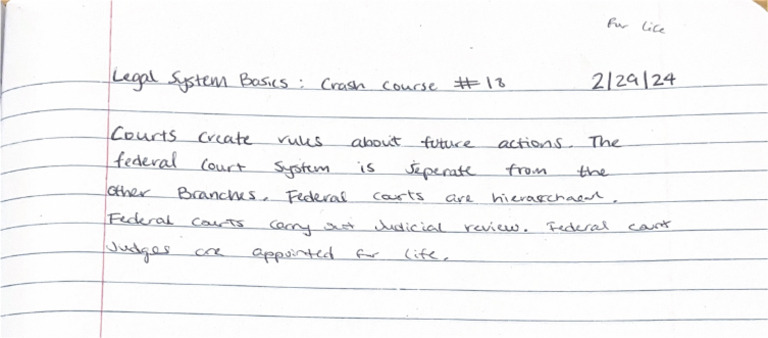 for life
Legal System Basics: Crash Course #18 2/29/24
Courts create rules about future actions. The
federal court system is seperate from the
other Branches. Federal courts are hierarchael.
Federal courts carry out Judicial review. Federal court
Judges are appointed for life.